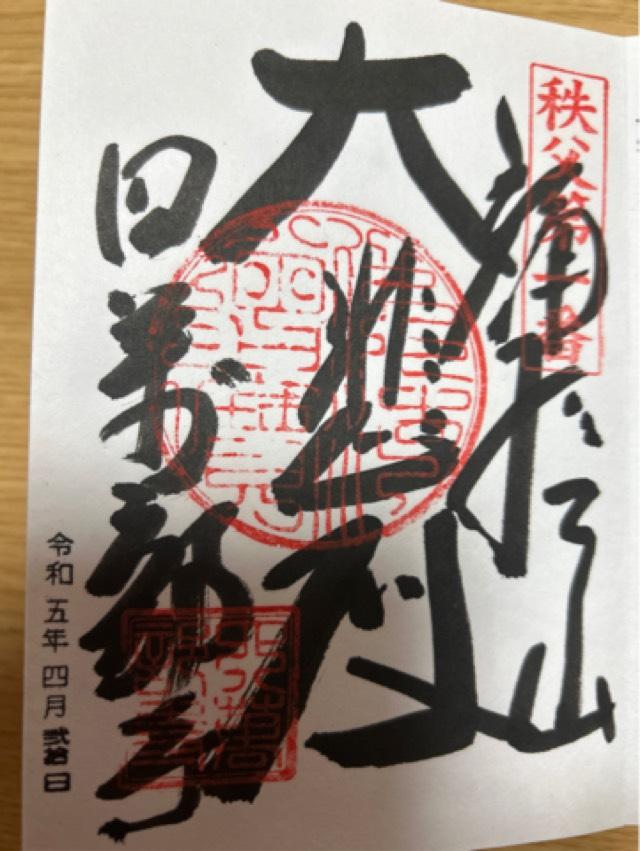 秩父第一番
誦経山
大悲殿
四萬部寺
令和五年四月弐拾日